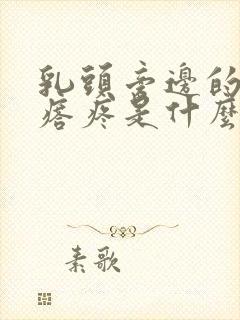 乳頭旁邊的
痞疼是什麼
素歌